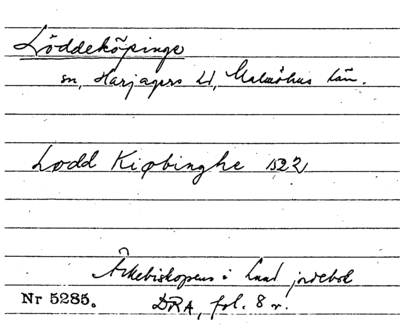 Löddeköpinge
sn, Harjagers hd, Malmöhus län.
Lodd Kiøbinghe 1522
Ärkebiskopens i Lund jordebok
Nr 5285. DRA, fol. 8 r.